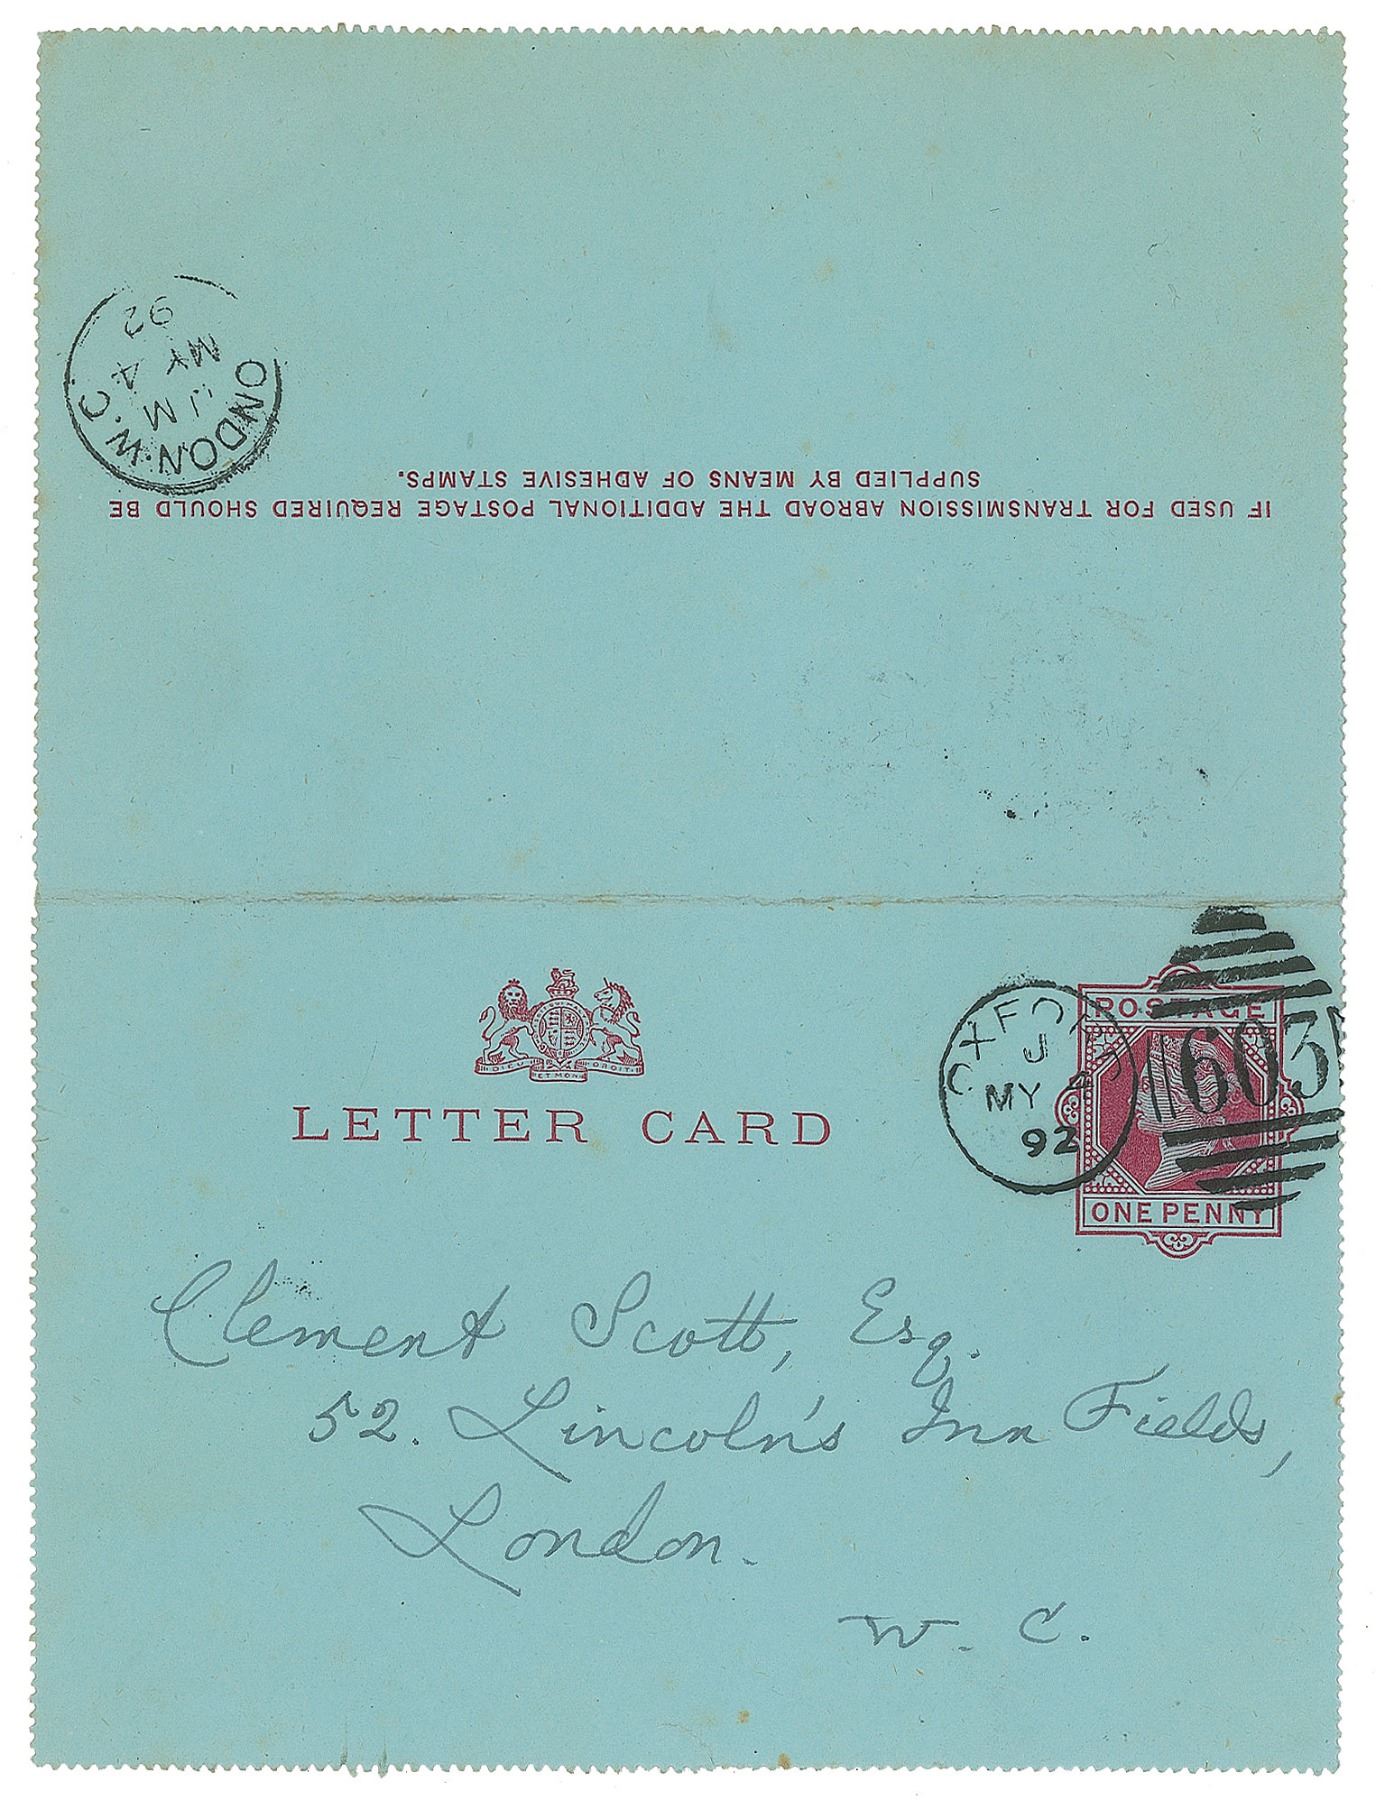 LONDON.W.C.
JM
MY 4
92
IF USED FOR TRANSMISSION ABROAD THE ADDITIONAL POSTAGE REQUIRED SHOULD BE
SUPPLIED BY MEANS OF ADHESIVE STAMPS.
DIEU ET MON DROIT
LETTER CARD
OXFORD
J
MY 4
92
603
POSTAGE
ONE PENNY
Clement Scott, Esq.
52. Lincoln's Inn Fields,
London.
W. C.